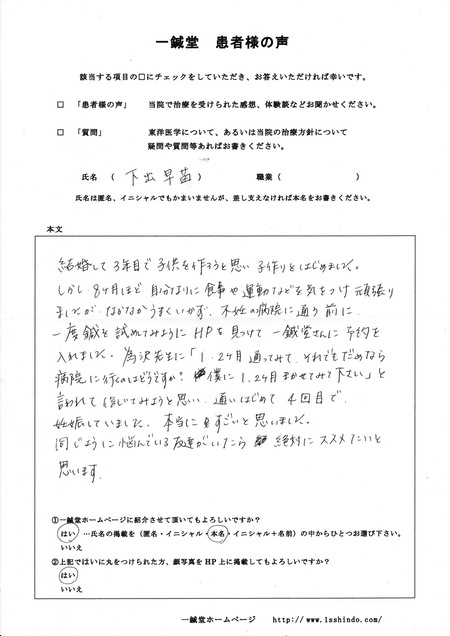 一鍼堂 患者様の声
該当する項目の□にチェックをしていただき、お答えいただければ幸いです。
□ 「患者様の声」 当院で治療を受けられた感想、体験談などお聞かせください。
□ 「質問」 東洋医学について、あるいは当院の治療方針について
疑問や質問等あればお書きください。
氏名 ( 下出早苗 ) 職業 ( )
氏名は匿名、イニシャルでもかまいませんが、差し支えなければ本名をお書きください。
本文
結婚して3年目で子供を作ろうと思い 子作りをはじめました。
しかし 8ヶ月ほど 自分なりに食事や運動などを気をつけ 頑張り
ましたが なかなかうまくいかず、不妊の病院に通う前に
一度鍼を試してみようと HPを見つけて 一鍼堂さんに予約を
入れました。 為沢先生に「1、2ヶ月通ってみて、それでもだめなら
病院に行くのはどうですか? 僕に1、2ヶ月まかせてみて下さい」と
言われて 信じてみようと思い 通いはじめて 4回目で、
妊娠していました。本当にすごいと思いました。
同じように悩んでいる友達がいたら 絶対にススメたいと
思います。
①一鍼堂ホームページに紹介させて頂いてもよろしいですか?
はい …氏名の掲載を(匿名・イニシャル・本名・イニシャル+名前)の中からひとつお選び下さい。
いいえ
②上記ではいに丸をつけられた方、顔写真をHP上に掲載してもよろしいですか?
はい
いいえ
一鍼堂ホームページ http://www.1sshindo.com/